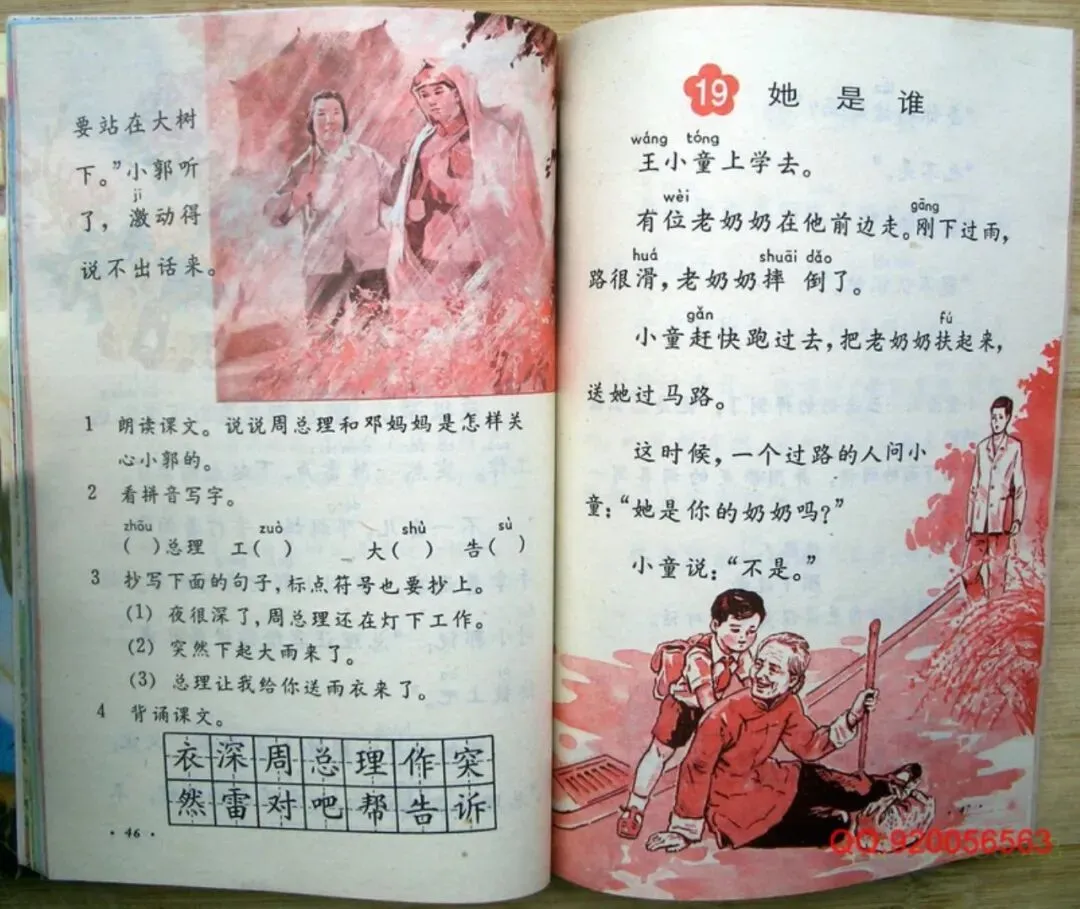 要站在大树
下。”小郭听
jī
了，激动得
说不出话来。
1 朗读课文。说说周总理和邓妈妈是怎样关
心小郭的。
2 看拼音写字。
zhōu zuò shù sù
( )总理 工( ) 大( ) 告( )
3 抄写下面的句子，标点符号也要抄上。
(1) 夜很深了，周总理还在灯下工作。
(2) 突然下起大雨来了。
(3) 总理让我给你送雨衣来了。
4 背诵课文。
衣深周总理作突
然雷对吧帮告诉
·46·
19 她是谁
wáng tóng
王小童上学去。
wèi gāng
有位老奶奶在他前边走。刚下过雨，
huá shuāi dǎo
路很滑，老奶奶摔倒了。
gǎn fú
小童赶快跑过去，把老奶奶扶起来，
送她过马路。
这时候，一个过路的人问小
童：“她是你的奶奶吗？”
小童说：“不是。”
QQ:920056563